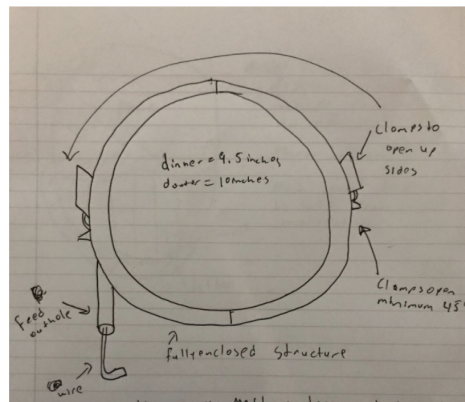 dinner = 9.5 inches
douter = 10 inches
Clamps to
open up
sides
Clamps open
minimum 45°
Feed
out hole
wire
fully enclosed structure